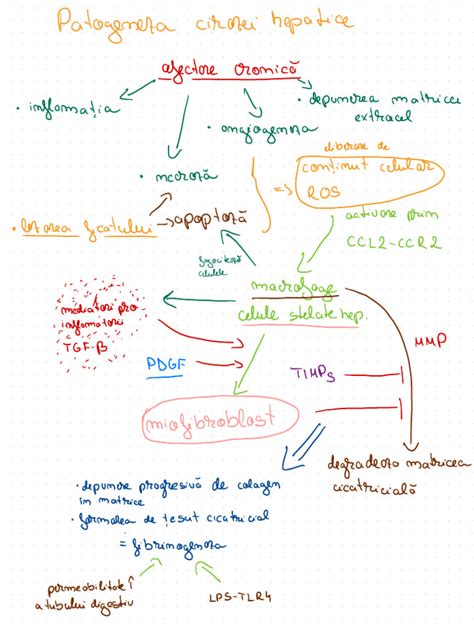 Patogeneza cirozei hepatice
afectare cronică
• inflamația
• angiogeneza
• depunerea matricei
extracel
• necroză
eliberare de
conținut celular
ROS
• lezarea ficatului → apoptoză
=>
activare prim
CCL2-CCR2
fagocitează
celulele
macrofage
celule stelate hep.
mediatori pro
inflamatorii
TGF-β
PDGF
TIMPs
MMP
miofibroblast
degradează matricea
cicatricială
• depunere progresivă de colagen
în matrice
• formarea de țesut cicatricial
= fibrinogeneza
permeabilitate î
a tubului digestiv
LPS-TLR4